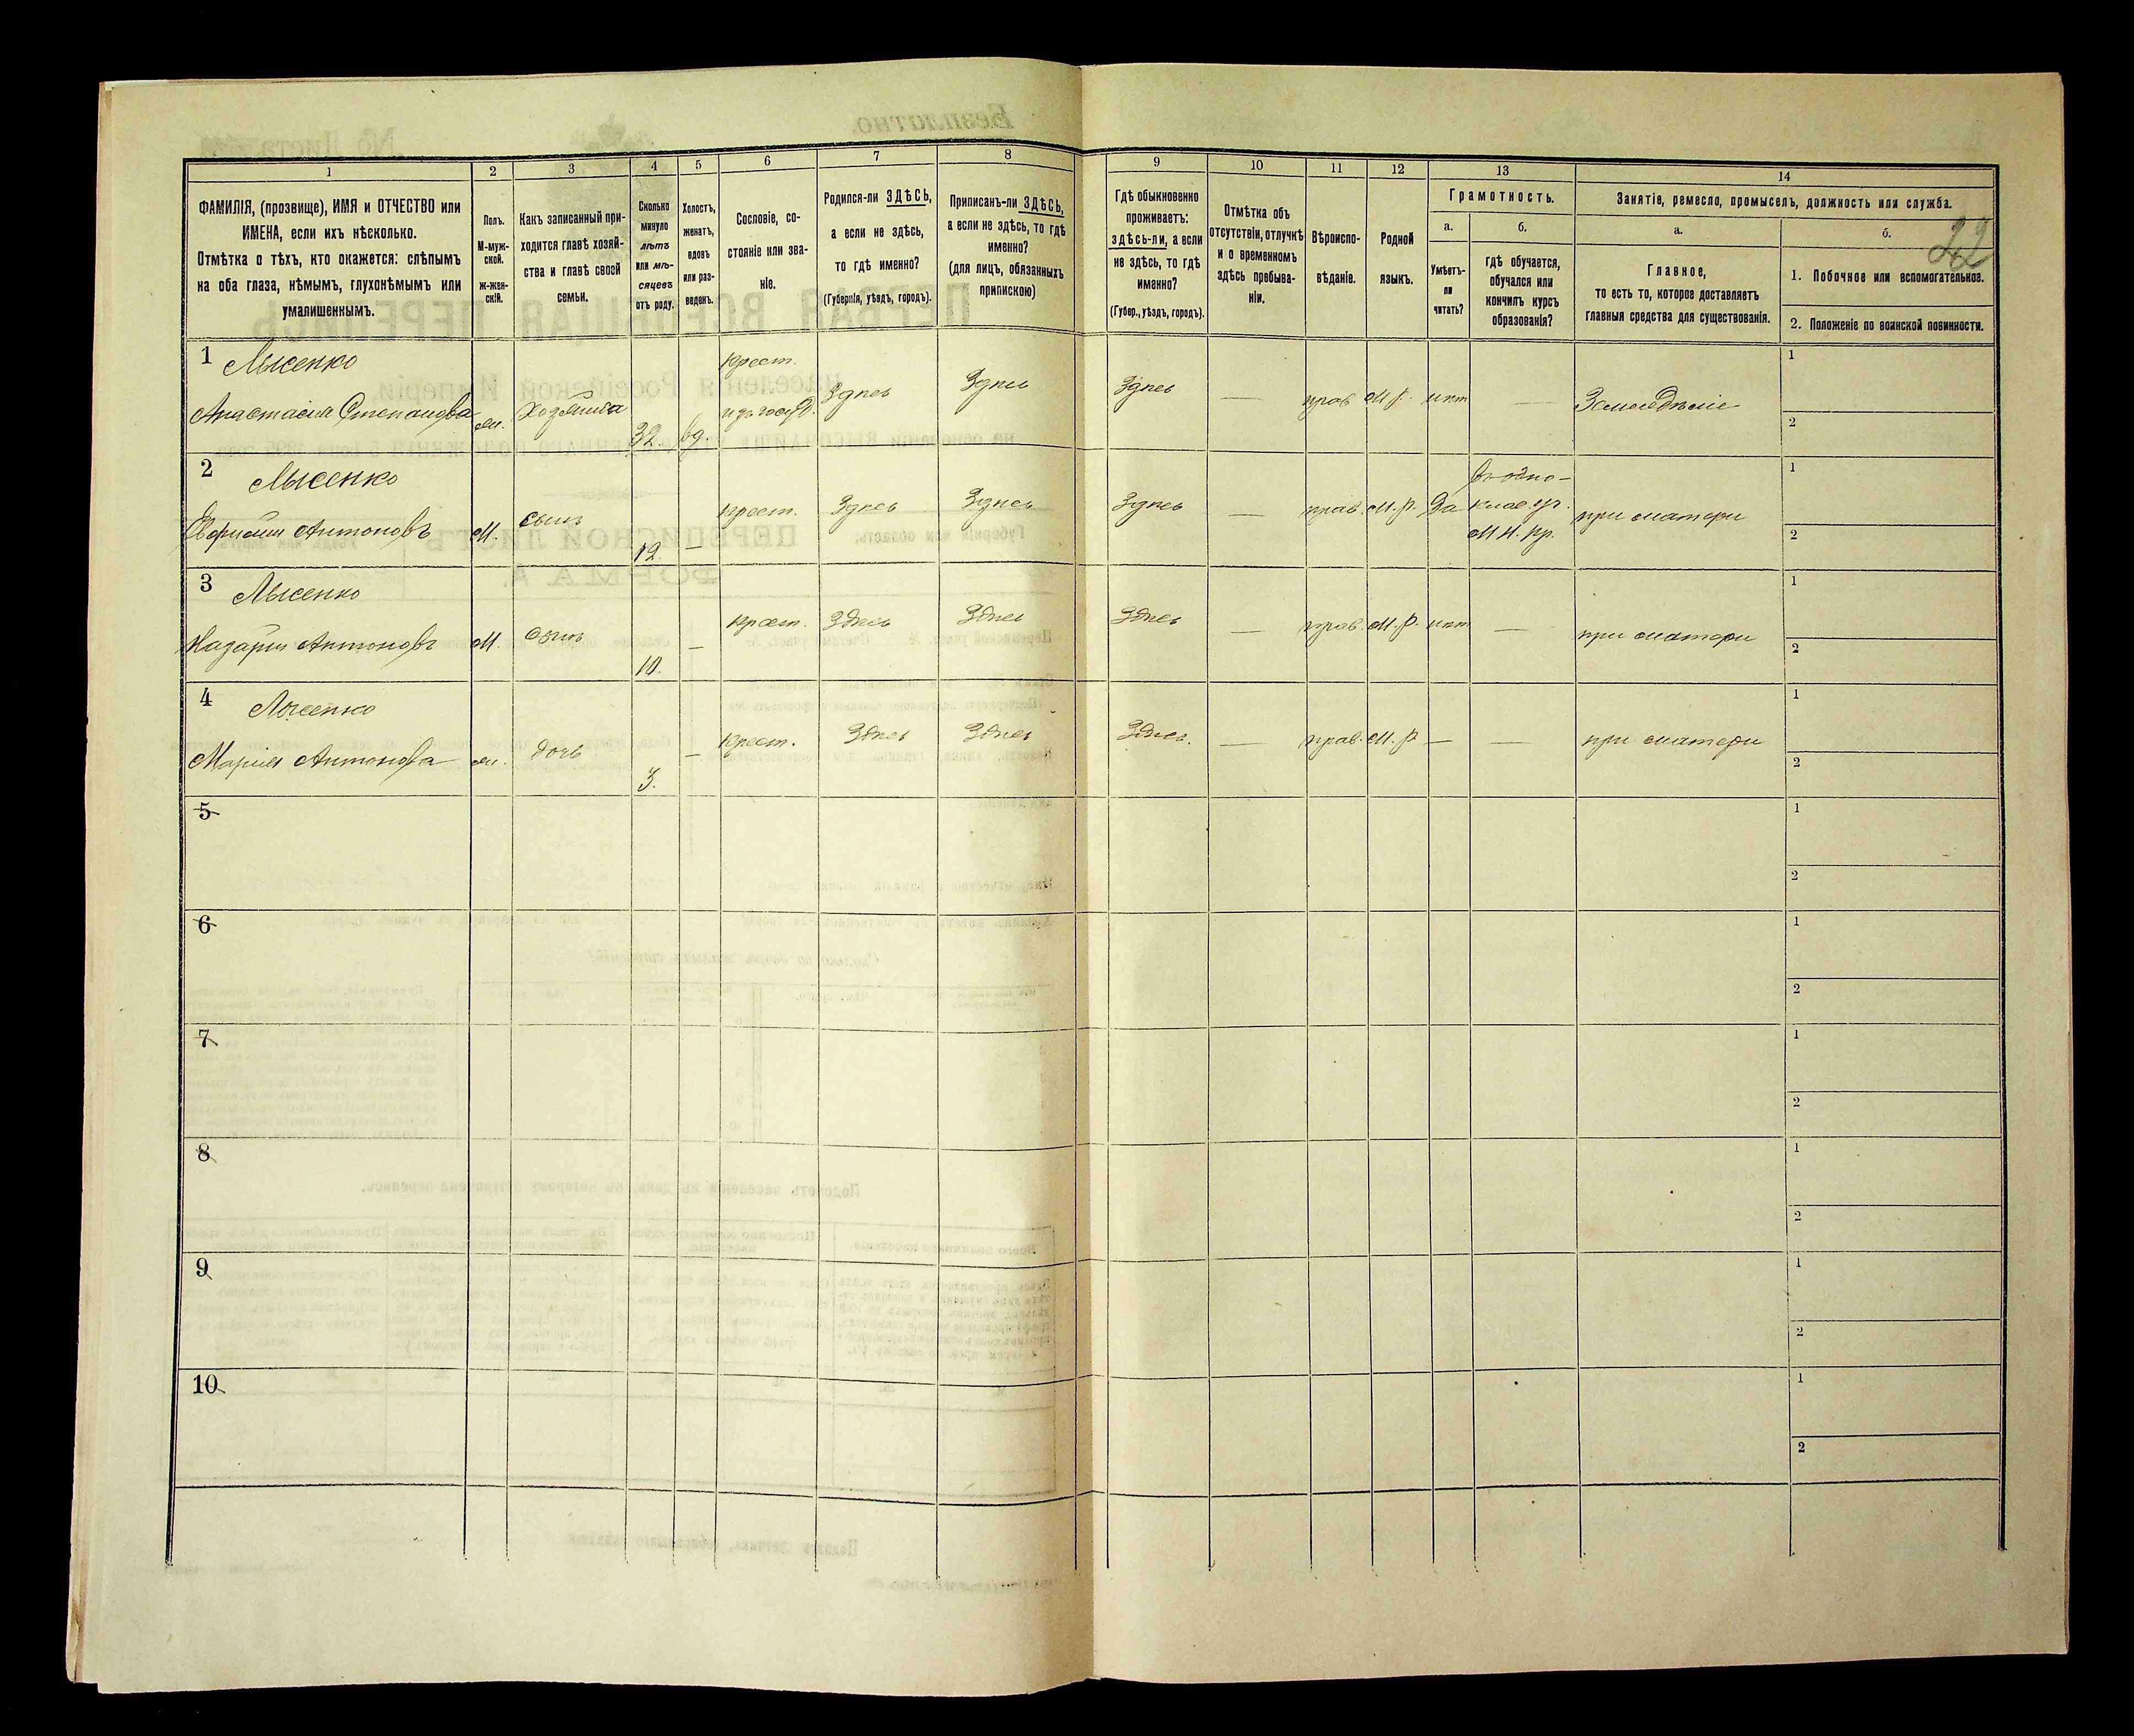 1 2 3 4 5 6 7 8 9 10 11 12 13 14
ФАМИЛІЯ, (прозвище), ИМЯ и ОТЧЕСТВО или
ИМЕНА, если ихъ нѣсколько.
Отмѣтка о тѣхъ, кто окажется: слѣпымъ
на оба глаза, нѣмымъ, глухонѣмымъ или
умалишеннымъ.
Полъ.
М-муж-
ской.
Ж-жен-
скій.
Какъ записанный при-
ходится главѣ хозяй-
ства и главѣ своей
семьи.
Сколько
минуло
лѣтъ
или мѣ-
сяцевъ
отъ роду.
Холостъ,
женатъ,
вдовъ
или раз-
веденъ.
Сословіе, со-
стояніе или зва-
ніе.
Родился-ли ЗДѢСЬ,
а если не здѣсь,
то гдѣ именно?
(Губернія, уѣздъ, городъ).
Приписанъ-ли ЗДѢСЬ,
а если не здѣсь, то гдѣ
именно?
(для лицъ, обязанныхъ
припискою)
Гдѣ обыкновенно
проживаетъ:
здѣсь-ли, а если
не здѣсь, то гдѣ
именно?
(Губер., уѣздъ, городъ).
Отмѣтка объ
отсутствіи, отлучкѣ
и о временномъ
здѣсь пребыва-
ніи.
Вѣроиспо-
вѣданіе.
Родной
языкъ.
Грамотность.
а.
Умѣетъ-
ли
читать?
б.
гдѣ обучается,
обучался или
кончилъ курсъ
образованія?
Занятіе, ремесло, промыселъ, должность или служба.
а.
Главное,
то есть то, которое доставляетъ
главныя средства для существованія.
б.
22
1. Побочное или вспомогательное.
2. Положеніе по воинской повинности.
1 Лысенко
Анастасия Степанова ж. Хозяйка 32. вд. крест. Здѣсь Здѣсь Здѣсь — прав М.р. нѣт — Земледѣліе
1
2
2 Лысенко
Евфимий Антоновъ М. сынъ 12. — крест. Здѣсь Здѣсь Здѣсь — прав. М.р. Да
въ одно-
клас. уч.
М Н. Пр.
при матери
1
2
3 Лысенко
Назарий Антоновъ М. сынъ 10. — крест. Здѣсь Здѣсь Здѣсь — прав. М.р. нѣт — при матери
1
2
4 Лысенко
Мария Антонова ж. дочь 3. — крест. Здѣсь Здѣсь Здѣсь. — прав. М.р — — при матери
1
2
5
1
2
6
1
2
7
1
2
8
1
2
9
1
2
10
1
2